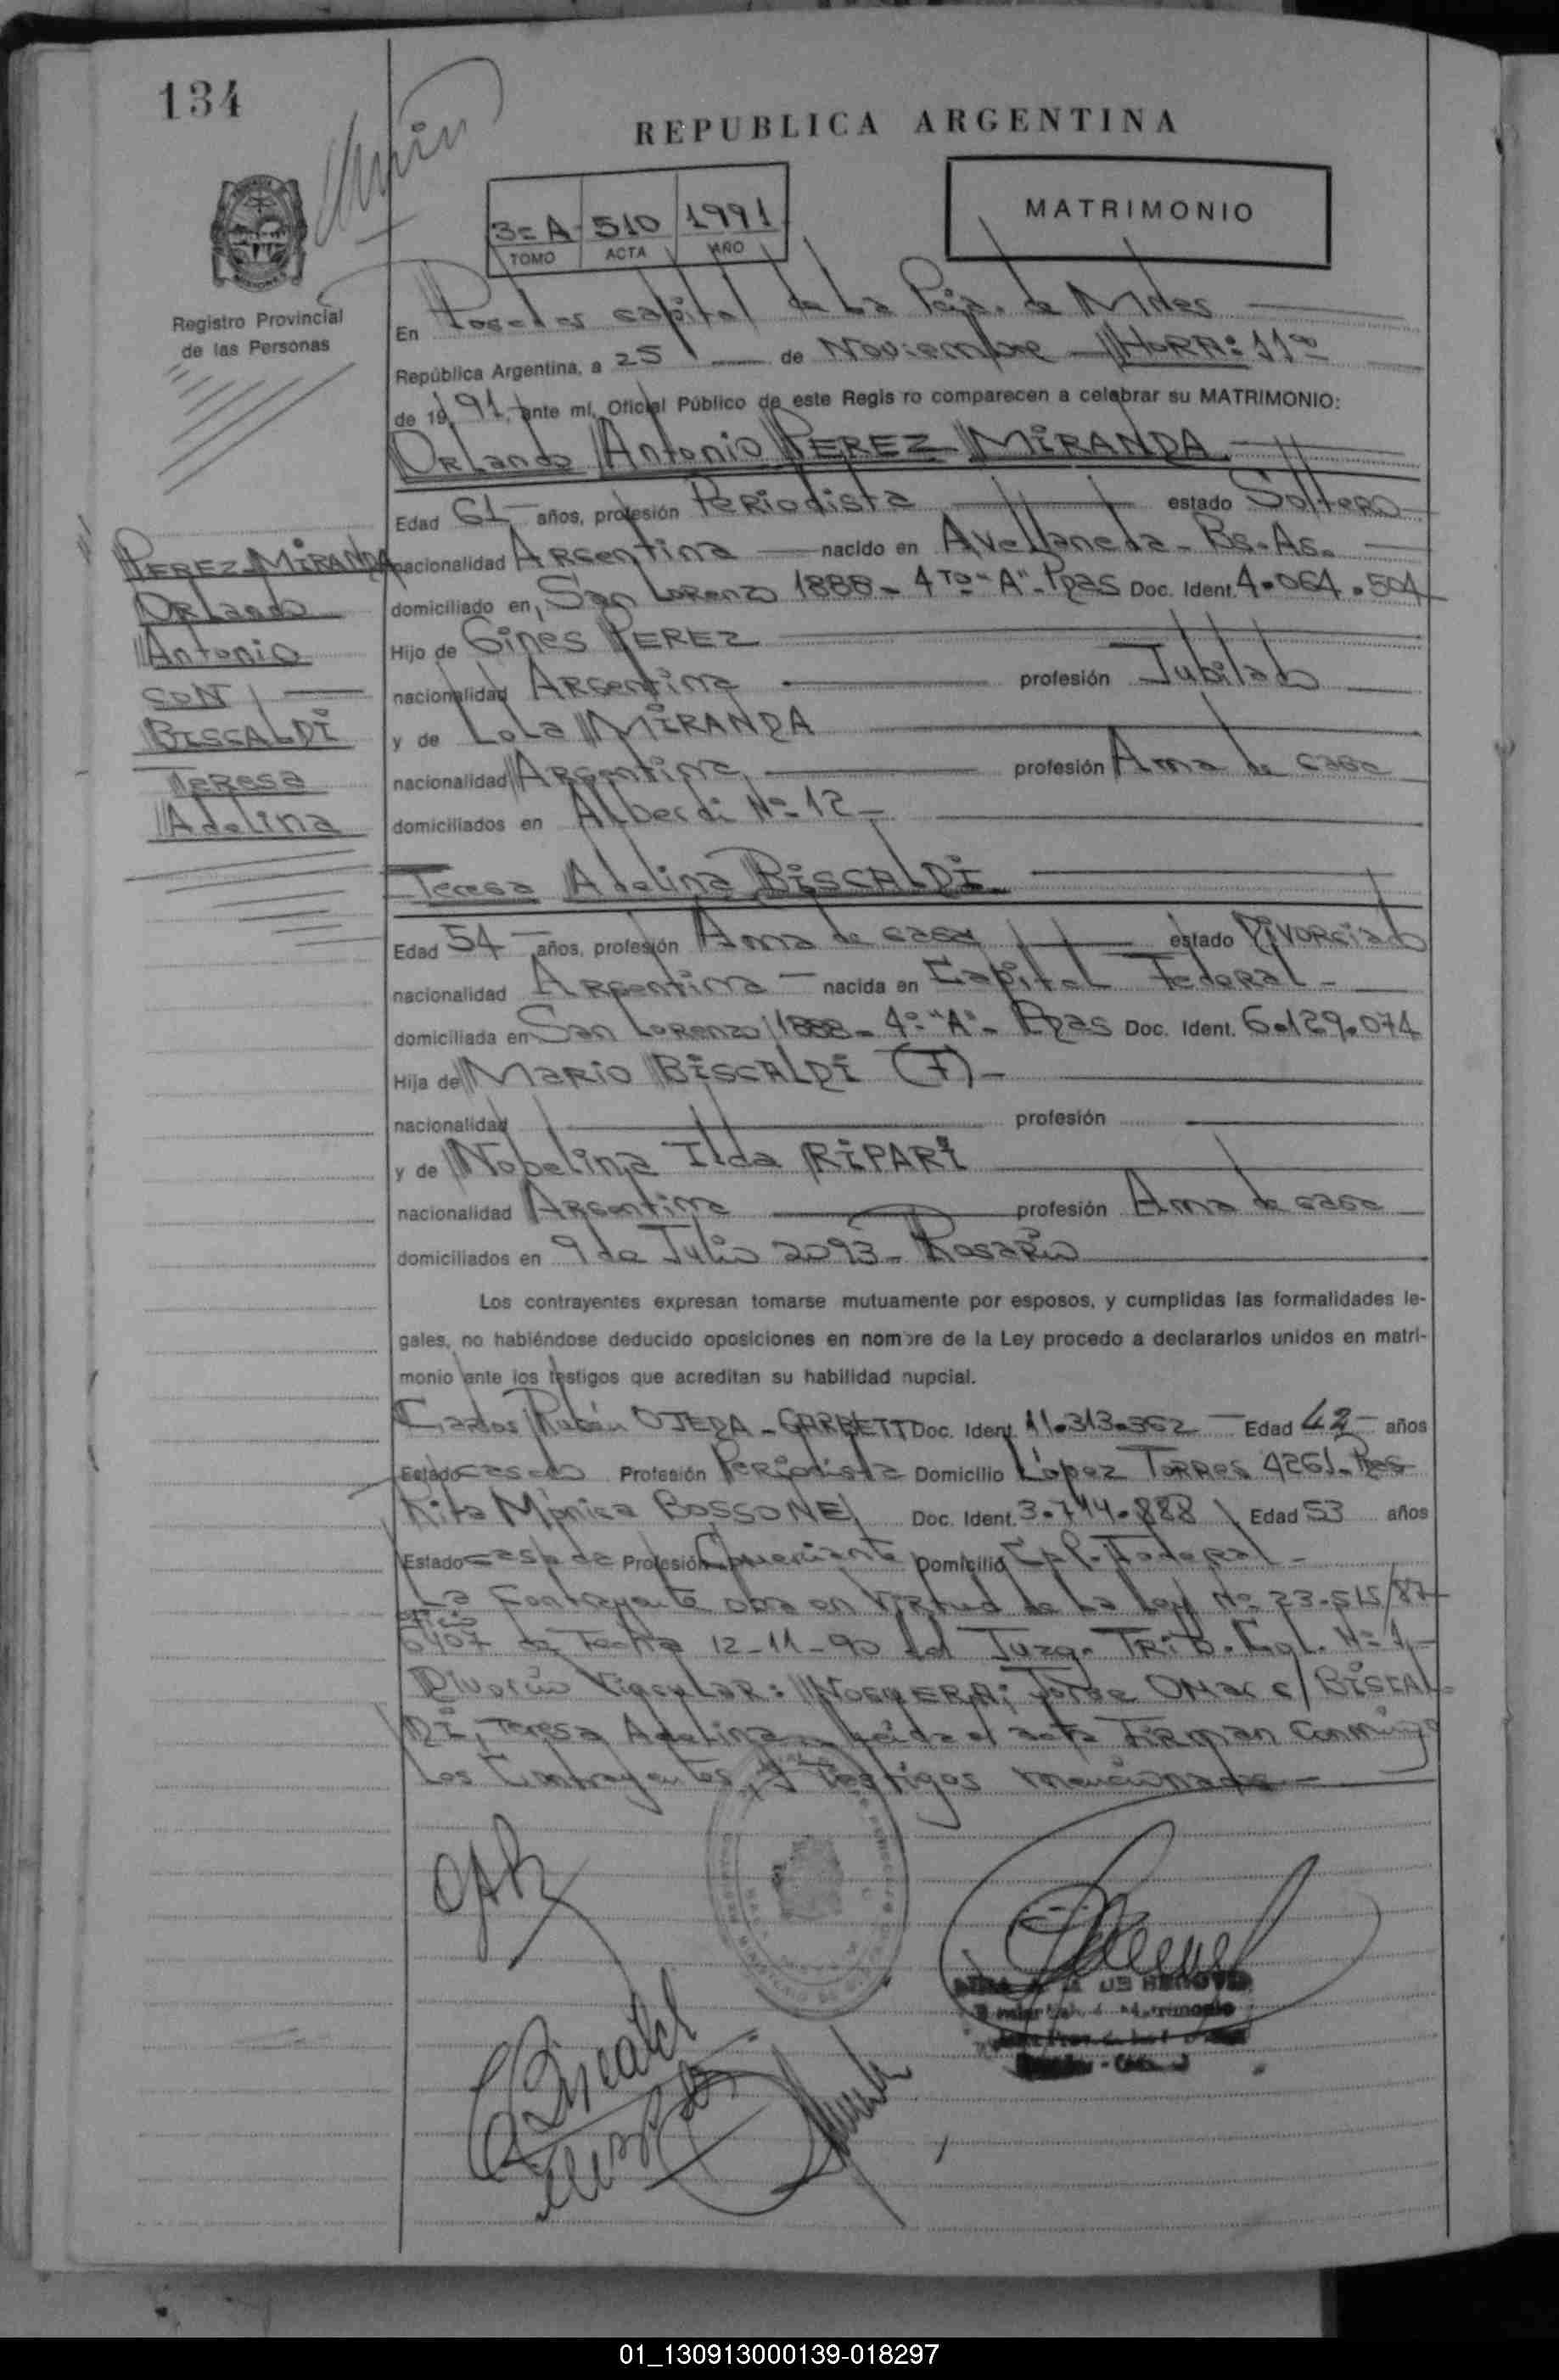 134
REPUBLICA ARGENTINA
3=A 510 1991
TOMO ACTA AÑO
MATRIMONIO
Registro Provincial
de las Personas
En Posadas capital de La Pcia. de Mnes
República Argentina, a 25 de Noviembre HORA: 11=
de 1991, ante mí, Oficial Público de este Regis ro comparecen a celebrar su MATRIMONIO:
Orlando Antonio PEREZ MIRANDA
Edad 61 años, profesión Periodista estado Soltero
nacionalidad Argentina nacido en Avellaneda - Bs. As.
domiciliado en, San Lorenzo 1888 - 4to "A" - Pdas Doc. Ident. 4.064.504
Hijo de Gines PEREZ
nacionalidad Argentina profesión Jubilado
y de Lola MIRANDA
nacionalidad Argentina profesión Ama de casa
domiciliados en Alberdi Nº 12
PEREZ MIRANDA
Orlando
Antonio
CON
BISCALDI
Teresa
Adelina
Teresa Adelina BISCALDI
Edad 54 años, profesión Ama de casa estado Divorciado
nacionalidad Argentina nacida en Capital Federal
domiciliada en San Lorenzo 1888 - 4º "A" - Pdas Doc. Ident. 6.129.074
Hija de Mario BISCALDI (F)
nacionalidad profesión
y de Nobelina Ilda RIPARI
nacionalidad Argentina profesión Ama de casa
domiciliados en 9 de Julio 2093 - Rosario
Los contrayentes expresan tomarse mutuamente por esposos, y cumplidas las formalidades le-
gales, no habiéndose deducido oposiciones en nombre de la Ley procedo a declararlos unidos en matri-
monio ante los testigos que acreditan su habilidad nupcial.
Carlos Rubén OJEDA - GARBETT Doc. Ident. 11.313.362 Edad 42 años
Estado casado Profesión Periodista Domicilio López Torres 4261 - Pdas
Rita Mónica BOSSONE Doc. Ident. 3.714.888 Edad 53 años
Estado casada Profesión Comerciante Domicilio Cpl. Federal
La Contrayente obra en Virtud de La Ley Nº 23.515/87
Oficio
6407 de Fecha 12-11-90 del Juzg. Trib. Col. Nº 1
Divorcio Vincular: NOGUERA; Jorge Omar c/ BISCAL-
DI, Teresa Adelina - Leída el acta Firman Conmigo
Los Contrayentes y Testigos mencionados
01_130913000139-018297